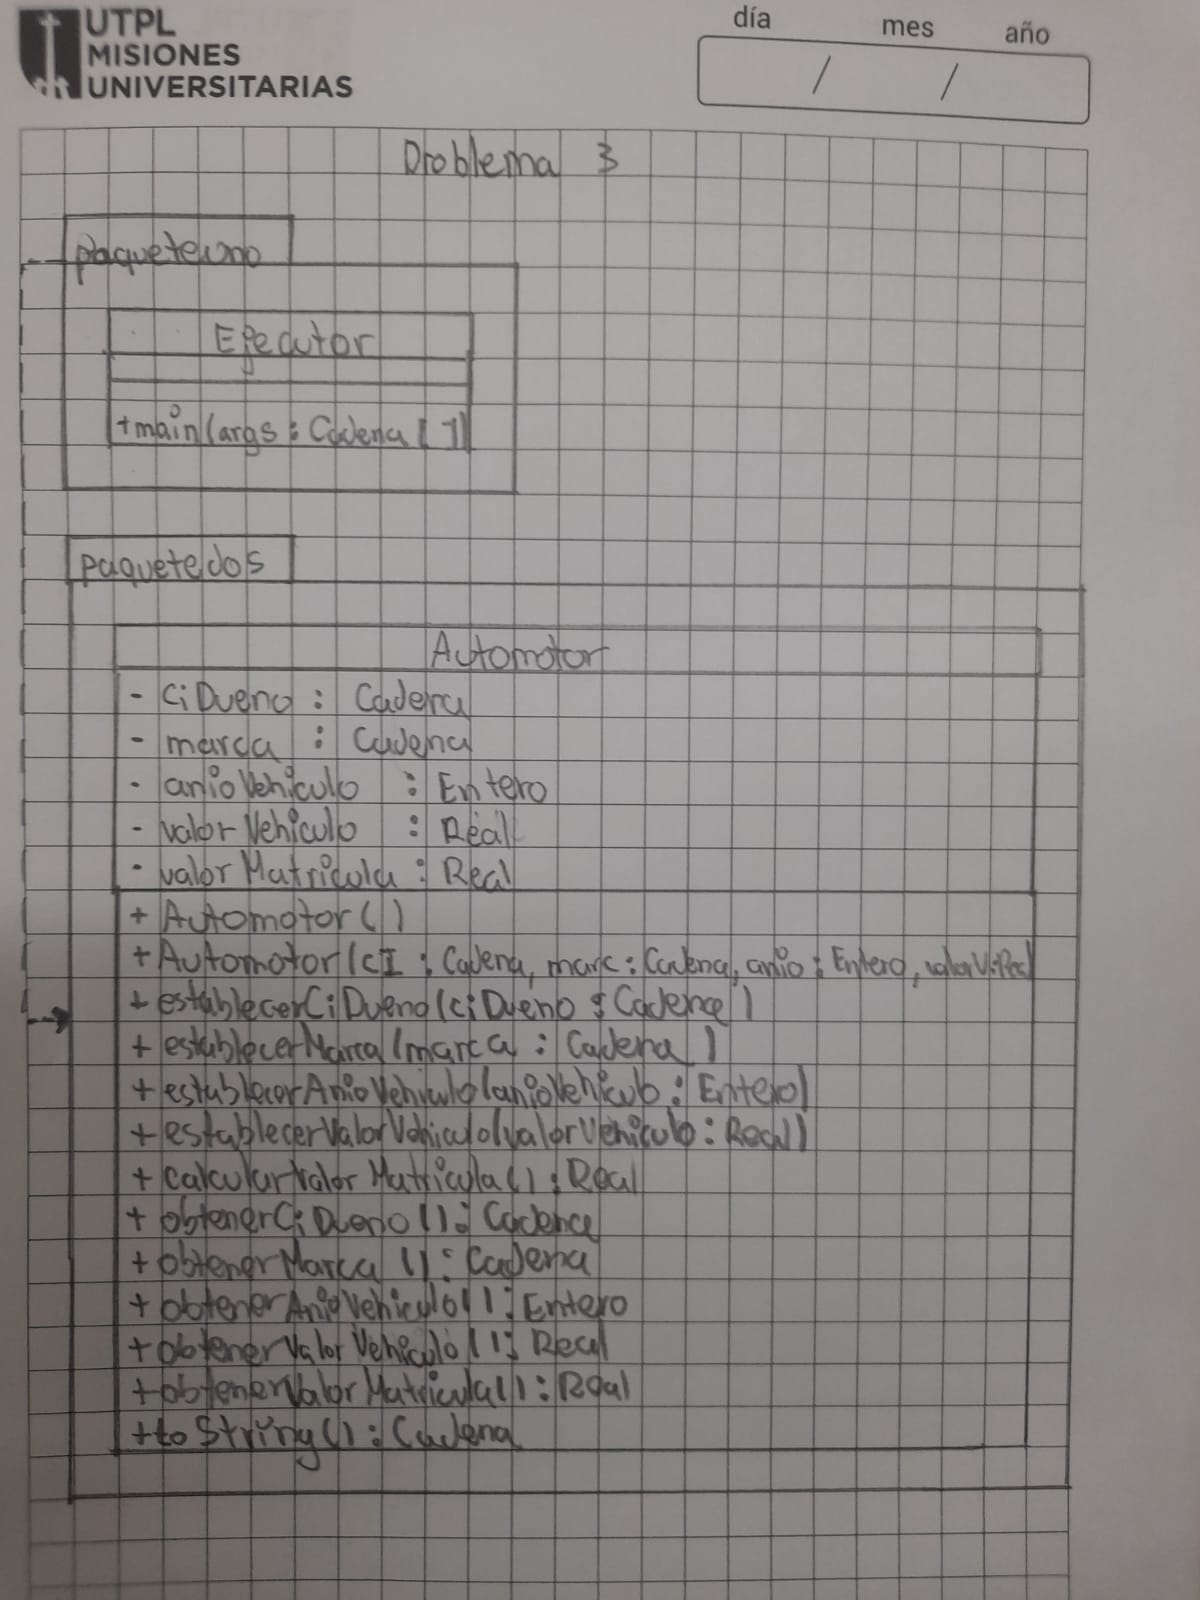 UTPL
MISIONES
UNIVERSITARIAS
día mes año
/ /
Problema 3
paqueteuno
Ejecutor
+main(args : Cadena [ ])
paquetedos
Automotor
- ciDueno : Cadena
- marca : Cadena
- anioVehiculo : Entero
- valorVehiculo : Real
- valorMatricula : Real
+ Automotor()
+ Automotor(cI : Cadena, marc : Cadena, anio : Entero, valorV:Real
+ establecerCiDueno(ciDueno : Cadena)
+ establecerMarca(marca : Cadena)
+ establecerAnioVehiculo(anioVehiculo : Entero)
+ establecerValorVehiculo(valorVehiculo : Real)
+ calcularValorMatricula() : Real
+ obtenerCiDueno() : Cadena
+ obtenerMarca () : Cadena
+ obtenerAnioVehiculo() : Entero
+ obtenerValorVehiculo() : Real
+ obtenerValorMatricula() : Real
+ toString() : Cadena